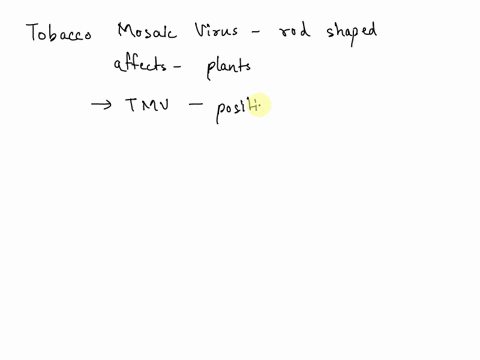 Tobacco Mosaic Virus - rod shaped
affects - plants
→ TMV - posit